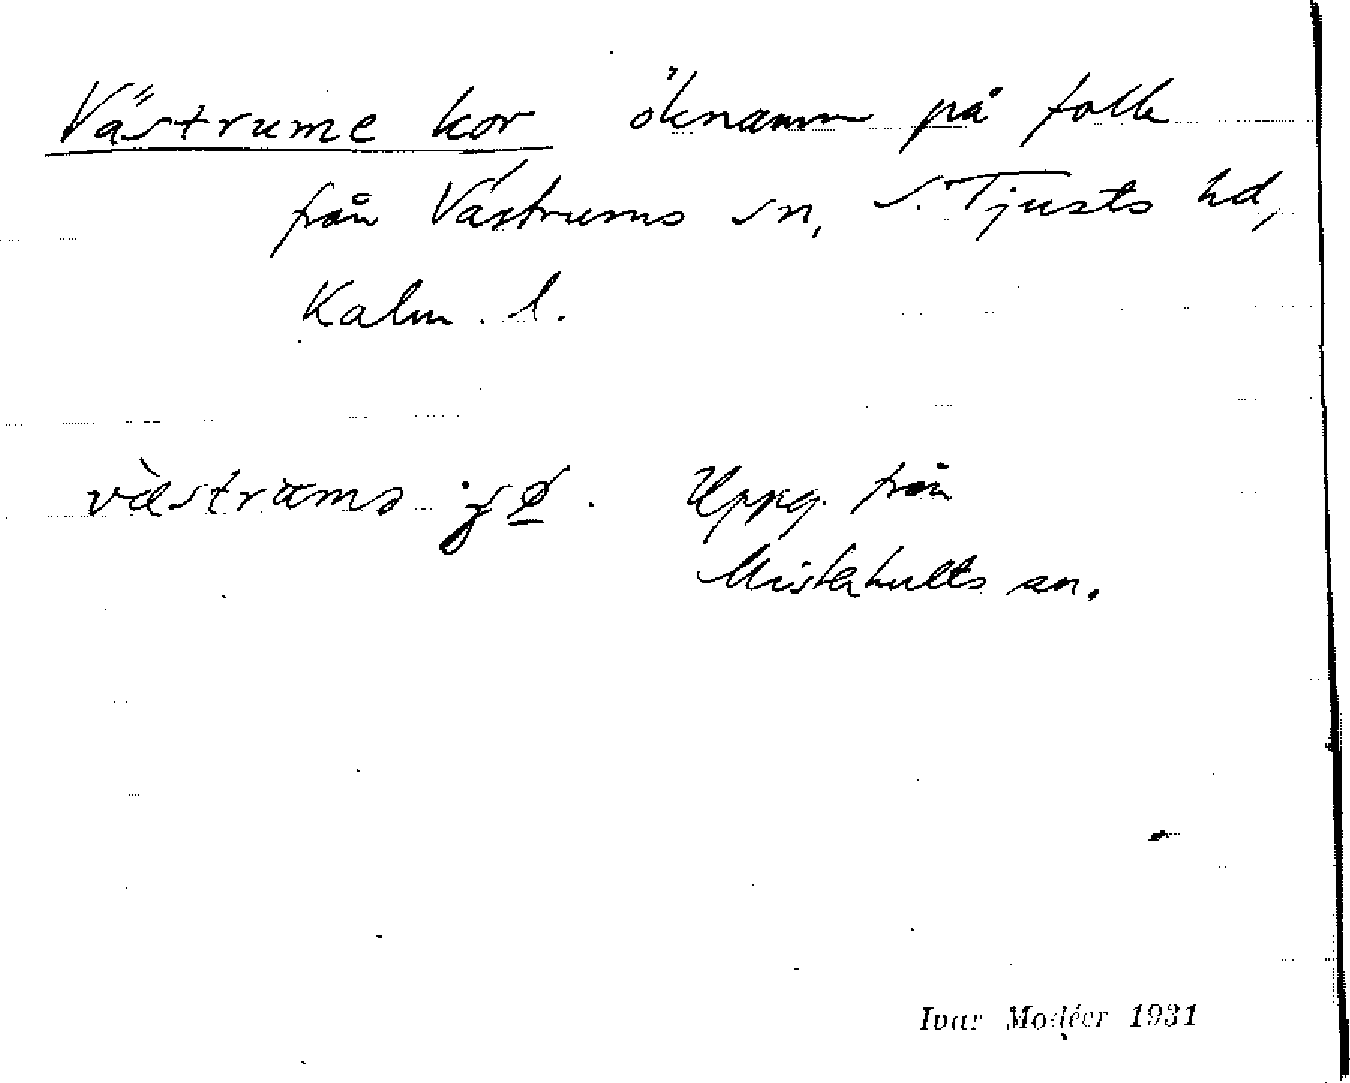 Västrume kor öknamn på folk
från Västrums sn, S. Tjusts hd,
Kalm. l.
Uppg. från
Misterhults sn.
Ivar Modéer 1931